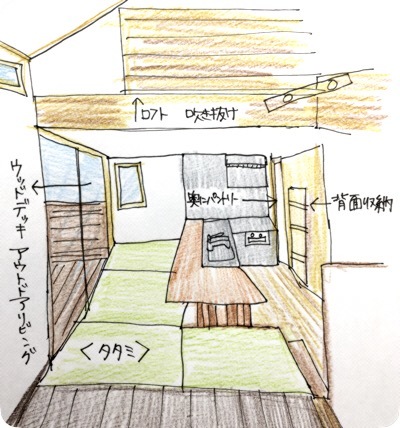 ↑ロフト 吹き抜け
ウッドデッキ アウトドアリビング
奥にパントリー
背面収納
<タタミ>